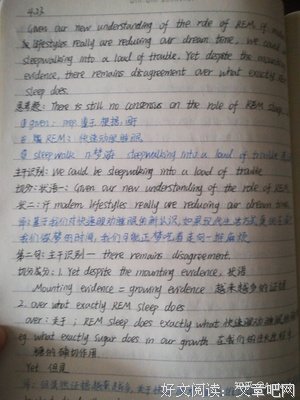 4.23
Given our new understanding of the role of REM, if modern
lifestyles really are reducing our dream time, we could be
sleepwalking into a load of trouble. Yet despite the mounting
evidence, there remains disagreement over what exactly REM
sleep does.
There is still no consensus on the role of REM sleep
① given: prep 鉴于
② REM: 快速动眼睡眠
③ sleepwalk n 梦游 sleepwalking into a load of trouble
主干识别: We could be sleepwalking into a load of trouble
切分: 状语一: Given our new understanding of the role of REM,
状二: if modern lifestyles really are reducing our dream time,
我们做梦的时间, 我们可能正梦游着走向一堆麻烦
第二句: 主干识别 — there remains disagreement.
切分成分: 1. Yet despite the mounting evidence, 状语
Mounting evidence = growing evidence 越来越多的证据
2. over what exactly REM sleep does
over: 关于; REM sleep does exactly what
eg. what exactly sugar does in our growth 在我们的
糖的确切作用
Yet 但是
好文阅读：文章吧网